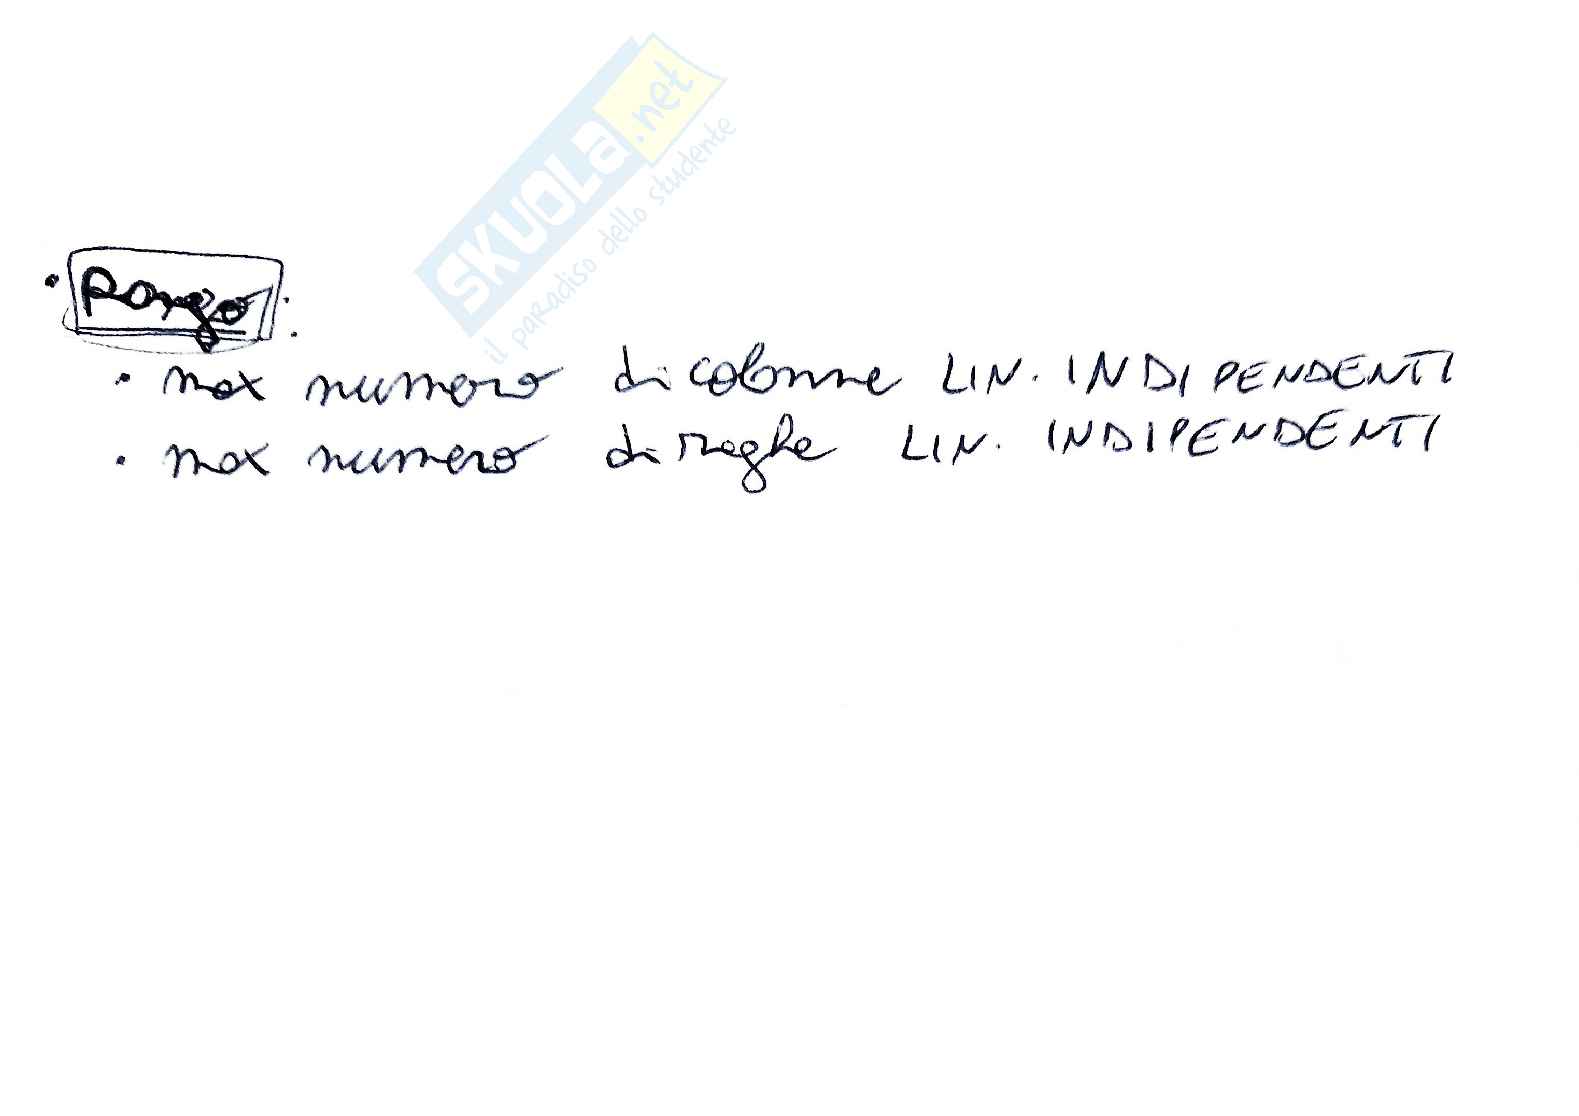 SKUOLA.net
il paradiso dello studente
· Rango:
· max numero di colonne LIN. INDIPENDENTI
· max numero di righe LIN. INDIPENDENTI